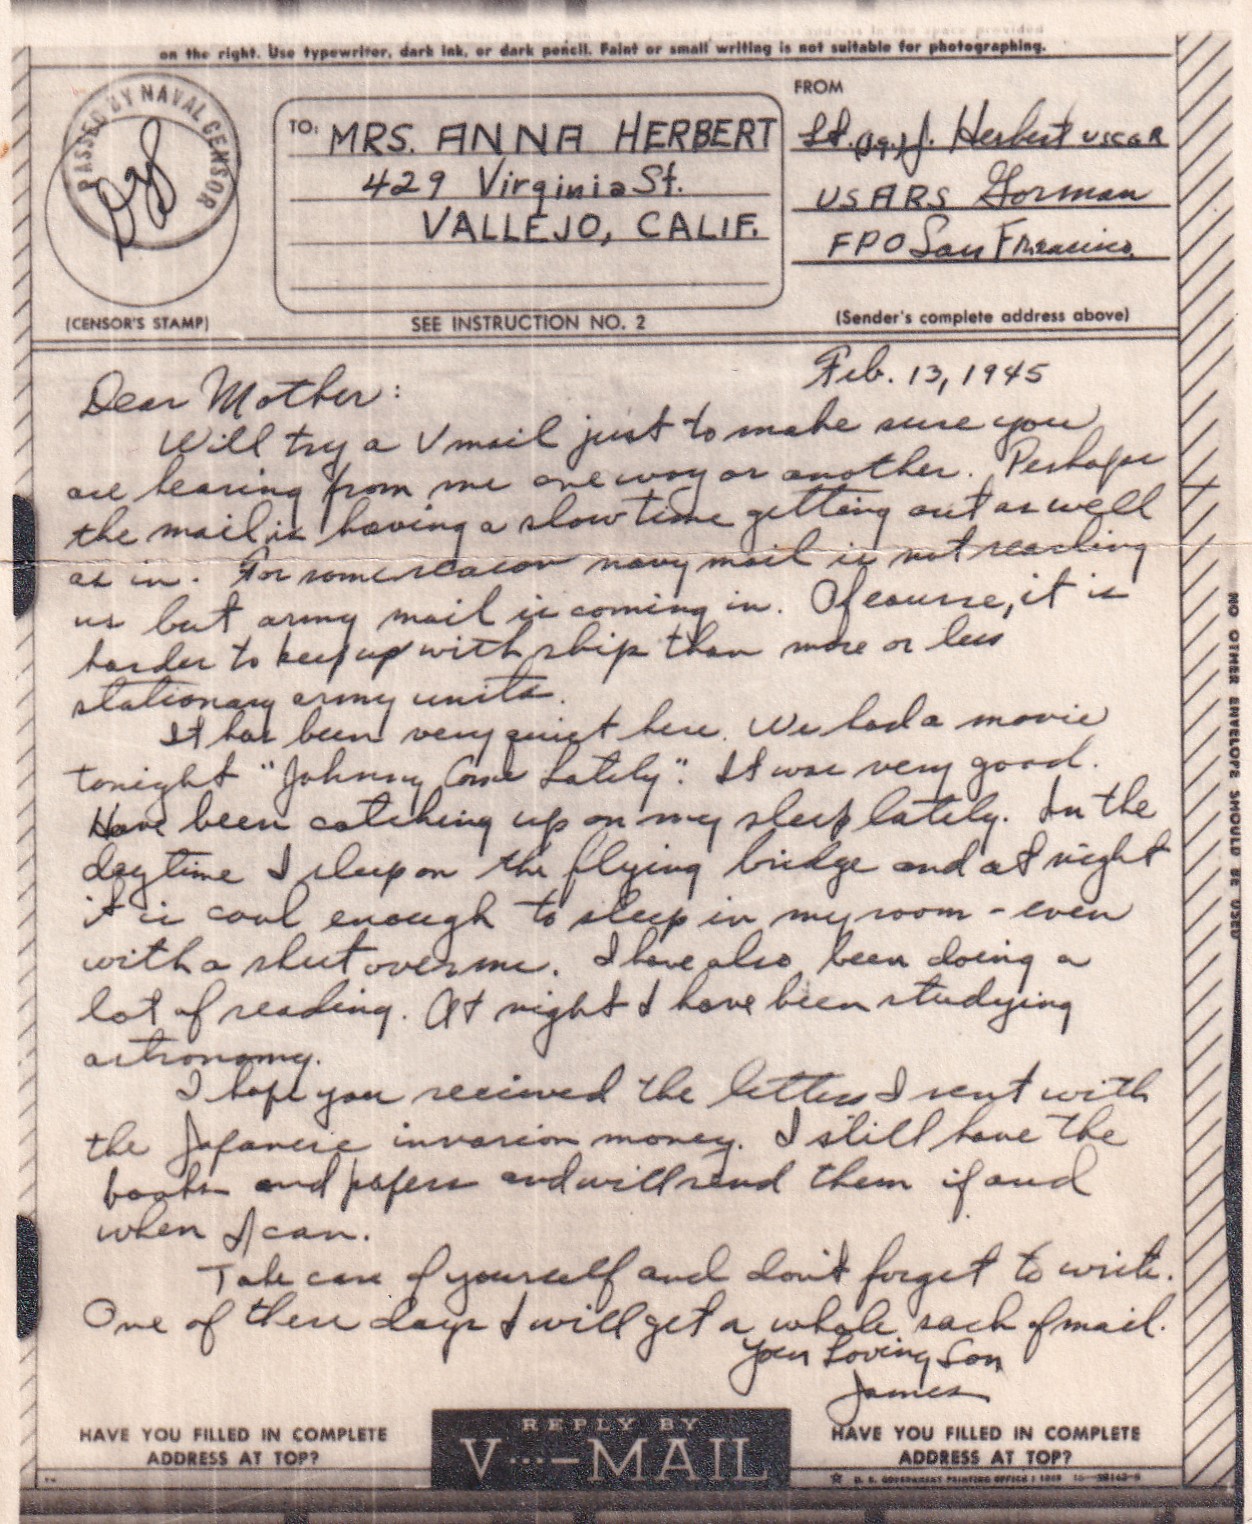 on the right. Use typewriter, dark ink, or dark pencil. Faint or small writing is not suitable for photographing.
PASSED BY NAVAL CENSOR
(CENSOR'S STAMP)
TO:
MRS. ANNA HERBERT
429 Virginia St.
VALLEJO, CALIF.
SEE INSTRUCTION NO. 2
FROM
Lt. (jg) J. Herbert USCGR
USARS Gorman
FPO San Francisco
(Sender's complete address above)
Feb. 13, 1945
Dear Mother:
Will try a V mail just to make sure you
are hearing from me one way or another. Perhaps
the mail is having a slow time getting out as well
as in. For some reason navy mail is not reaching
us but army mail is coming in. Of course, it is
harder to keep up with ship than more or less
stationary army units.
It has been very quiet here. We had a movie
tonight "Johnny Come Lately". It was very good.
Have been catching up on my sleep lately. In the
daytime I sleep on the flying bridge and at night
it is cool enough to sleep in my room - even
with a sheet over me. I have also been doing a
lot of reading. At night I have been studying
astronomy.
I hope you received the letters I sent with
the Japanese invasion money. I still have the
books and papers and will send them if and
when I can.
Take care of yourself and don't forget to write.
One of these days I will get a whole sack of mail.
Your Loving Son
James
HAVE YOU FILLED IN COMPLETE
ADDRESS AT TOP?
REPLY BY
V···—MAIL
HAVE YOU FILLED IN COMPLETE
ADDRESS AT TOP?
U. S. GOVERNMENT PRINTING OFFICE
NO OTHER ENVELOPE SHOULD BE USED